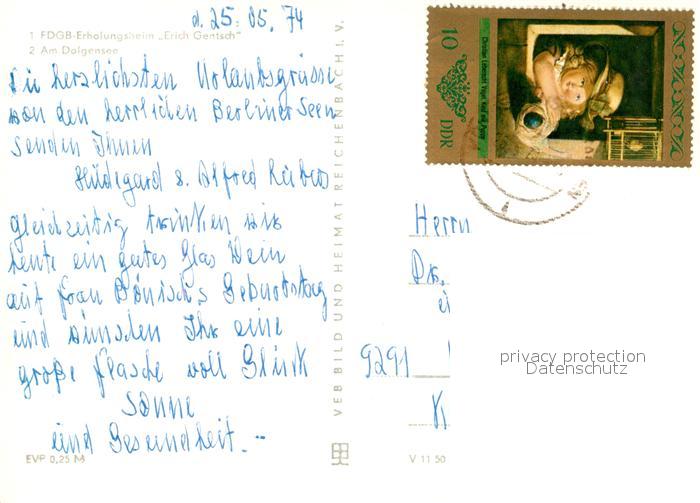 d. 25. 05. 74
1 FDGB-Erholungsheim „Erich Gentsch"
2 Am Dolgensee
Die herzlichsten Urlaubsgrüsse
von den herrlichen Berliner Seen
senden Ihnen
Hildegard u. Alfred
gleichzeitig trinken wir
heute ein gutes Glas Wein
auf Frau Bönisch's Geburtstag
und wünschen Ihr eine
große Flasche voll Glück
Sonne
und Gesundheit.
EVP 0,25 M
VEB BILD UND HEIMAT REICHENBACH I. V.
V 11 50
10
DDR
Christian Leberecht Vogel, Kind mit Puppe
Herrn
Dr.
9291
privacy protection
Datenschutz